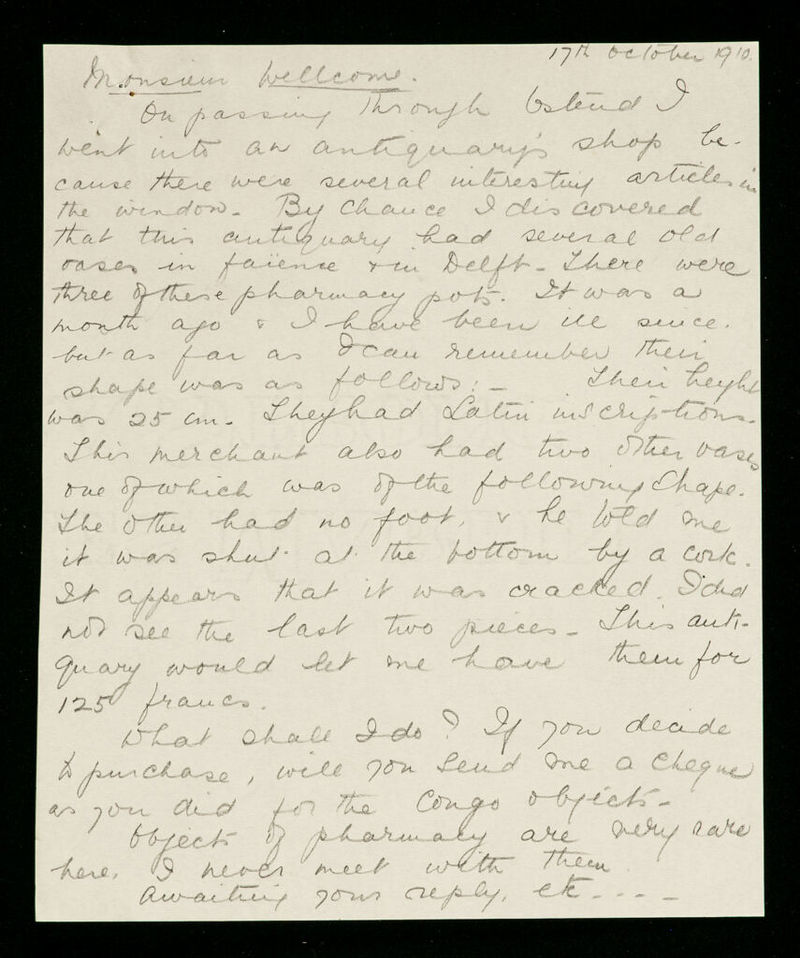 17th October 1910.
Monsieur Wellcome.
On passing through Ostend I
went into an antiquary's shop be-
cause there were several interesting articles in
the window. By chance I discovered
that this antiquary had several old
vases in faïence & in Delft - There were
three of these pharmacy pots. It was a
month ago & I have been ill since.
but as far as I can remember their
shape was as follows :- Their height
was 25 cm. They had Latin inscriptions.
This merchant also had two other vases
one of which was of the following shape.
The other had no foot, & he told me
it was shut at the bottom by a cork.
It appears that it was cracked. I did
not see the last two pieces - This anti-
quary would let me have them for
125 francs.
What shall I do? If you decide
to purchase, will you send me a cheque
as you did for the Congo objects -
Objects of pharmacy are very rare
here. I never meet with them
Awaiting your reply, etc - - - -